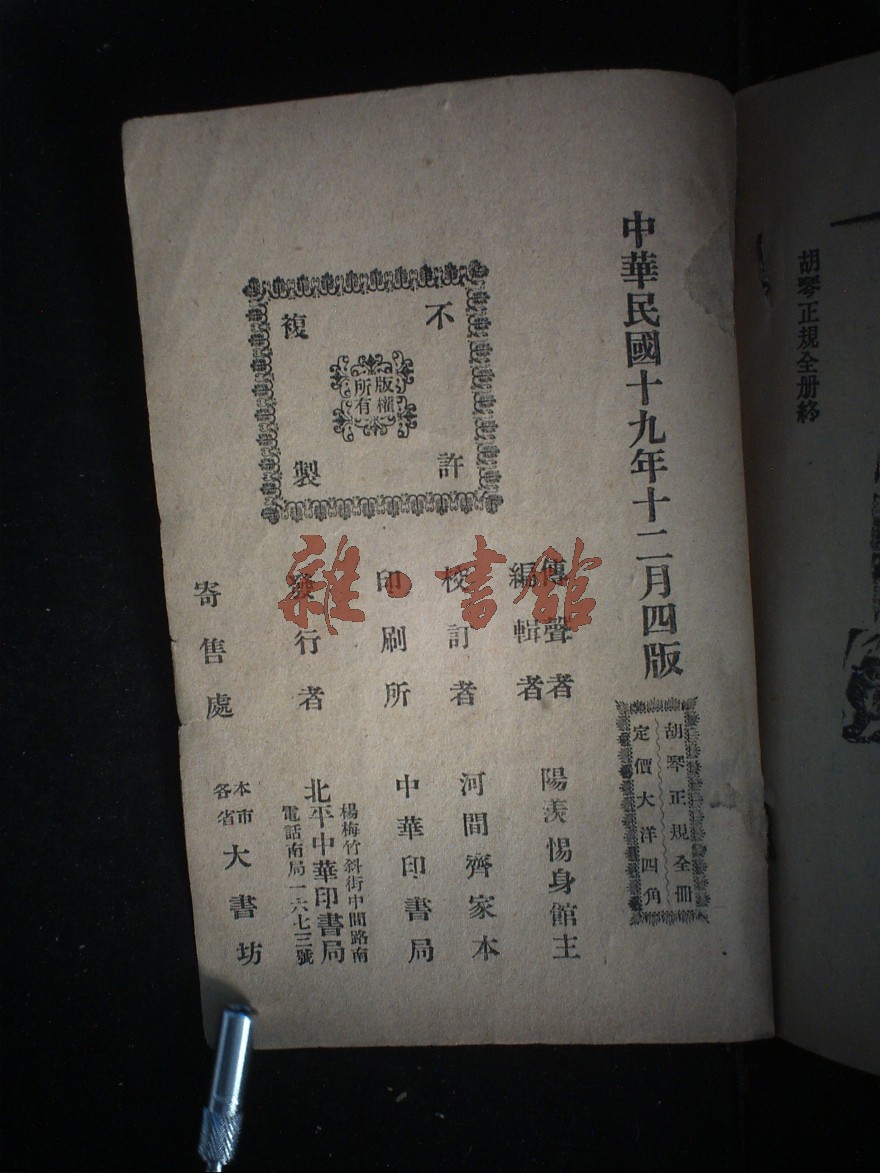 胡琴正規全册終
中華民國十九年十二月四版
胡琴正規全册
定價大洋四角
不許
複製
版權
所有
傳聲者
編輯者
陽羨惕身館主
校訂者
河間齊家本
印刷所
中華印書局
發行者
楊梅竹斜街中間路南
北平中華印書局
電話南局一六七三號
寄售處
本市
各省
大書坊
雜·書館